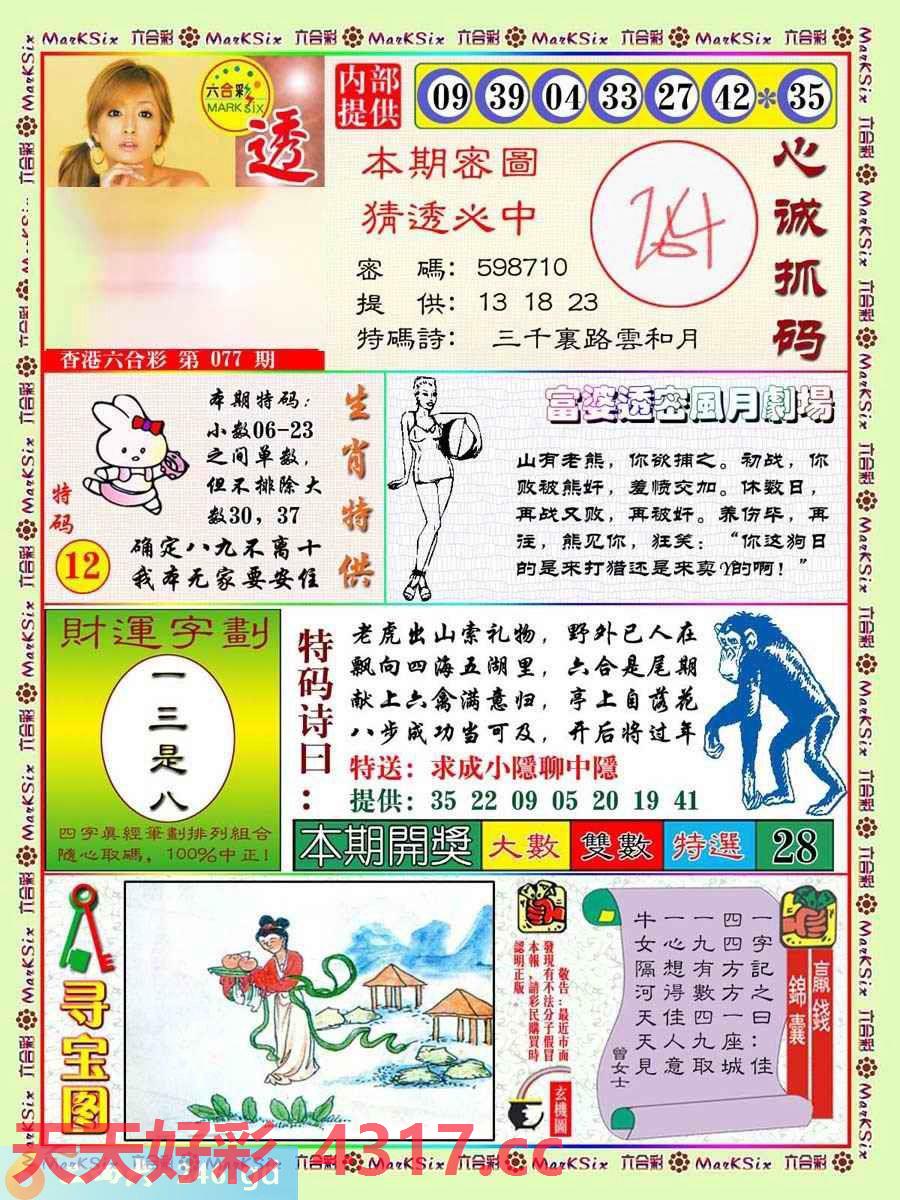 MarKSix 六合彩 MarKSix 六合彩 MarKSix 六合彩 MarKSix 六合彩 MarKSix 六合彩
六合彩
MARK six
透
内部
提供
09 39 04 33 27 42 * 35
本期密圖
猜透必中
密 碼: 598710
提 供: 13 18 23
特碼詩: 三千裏路雲和月
264
心诚抓码
香港六合彩 第 077 期
本期特码:
小数06-23
之间单数,
但不排除大
数30,37
确定八九不离十
我本无家要安住
特码
12
生肖特供
富婆透密風月劇場
山有老熊,你欲捕之。初战,你
败被熊奸,羞愤交加。休数日,
再战又败,再被奸。养伤毕,再
往,熊见你,狂笑:“你这狗日
的是来打猎还是来卖Y的啊!”
財運字劃
一三是八
四字眞經筆劃排列組合
隨心取碼,100%中正!
特码诗曰:
老虎出山索礼物,野外已人在
飘向四海五湖里,六合是尾期
献上六禽满意归,亭上自落花
八步成功当可及,开后将过年
特送:求成小隱聊中隱
提供:35 22 09 05 20 19 41
本期開獎 大數 雙數 特選 28
寻宝图
敬告:最近市面
發現有不法分子假冒
本報,請彩民購買時
認明正版。
玄機圖
一字記之曰:佳
四四方方一座城
一九有數四九取
一心想得佳人意
牛女隔河天天見
曾女士
贏錢
錦囊
天天好彩 4317.cc
MarKSix 六合彩 MarKSix 六合彩 MarKSix 六合彩